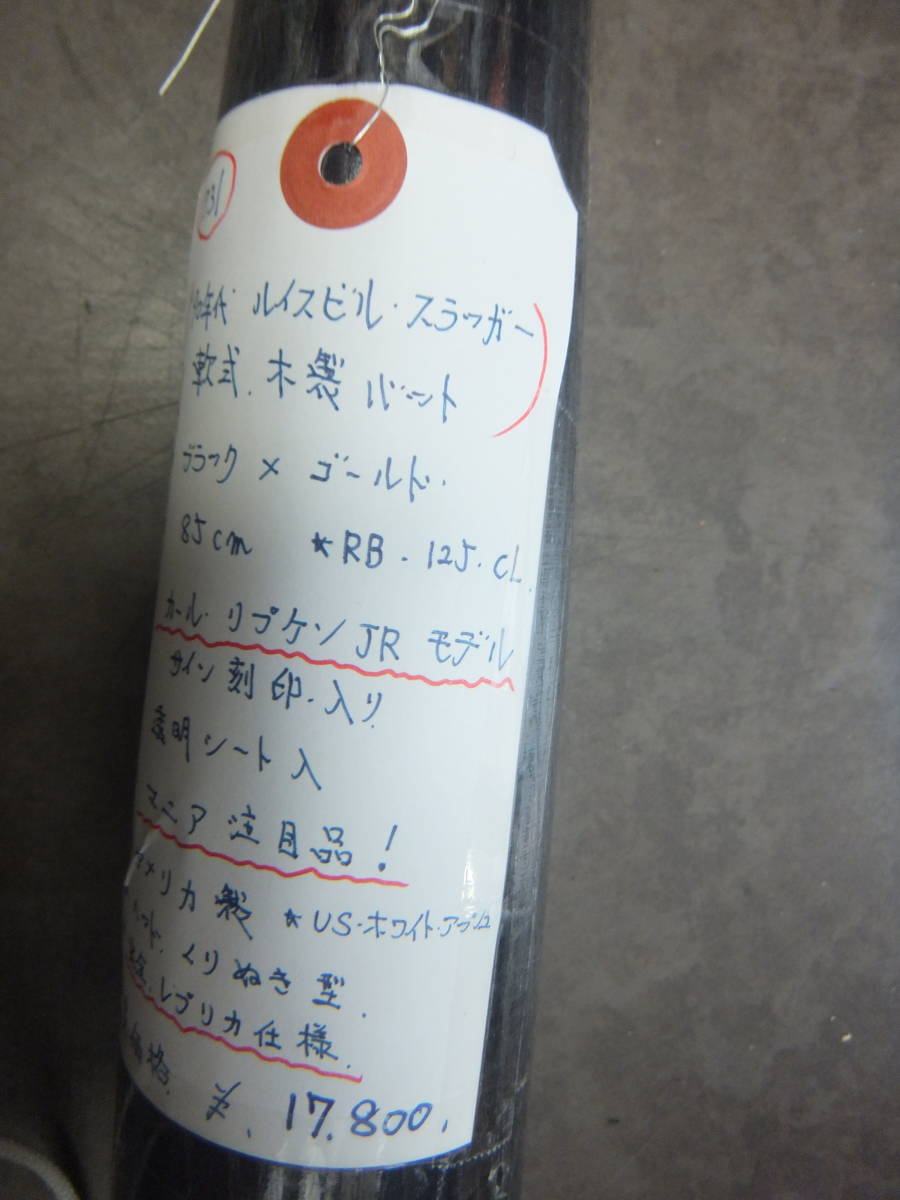 年代 ルイスビル・スラッガー
軟式.木製 バット
ブラック × ゴールド.
85cm ★RB-125.CL.
カール・リプケンJRモデル
サイン刻印.入り
透明シート入
マニア注目品!
アメリカ製 ★US・ホワイト・アッシュ
ヘッド.くりぬき型.
レプリカ仕様.
価格. ¥.17.800.